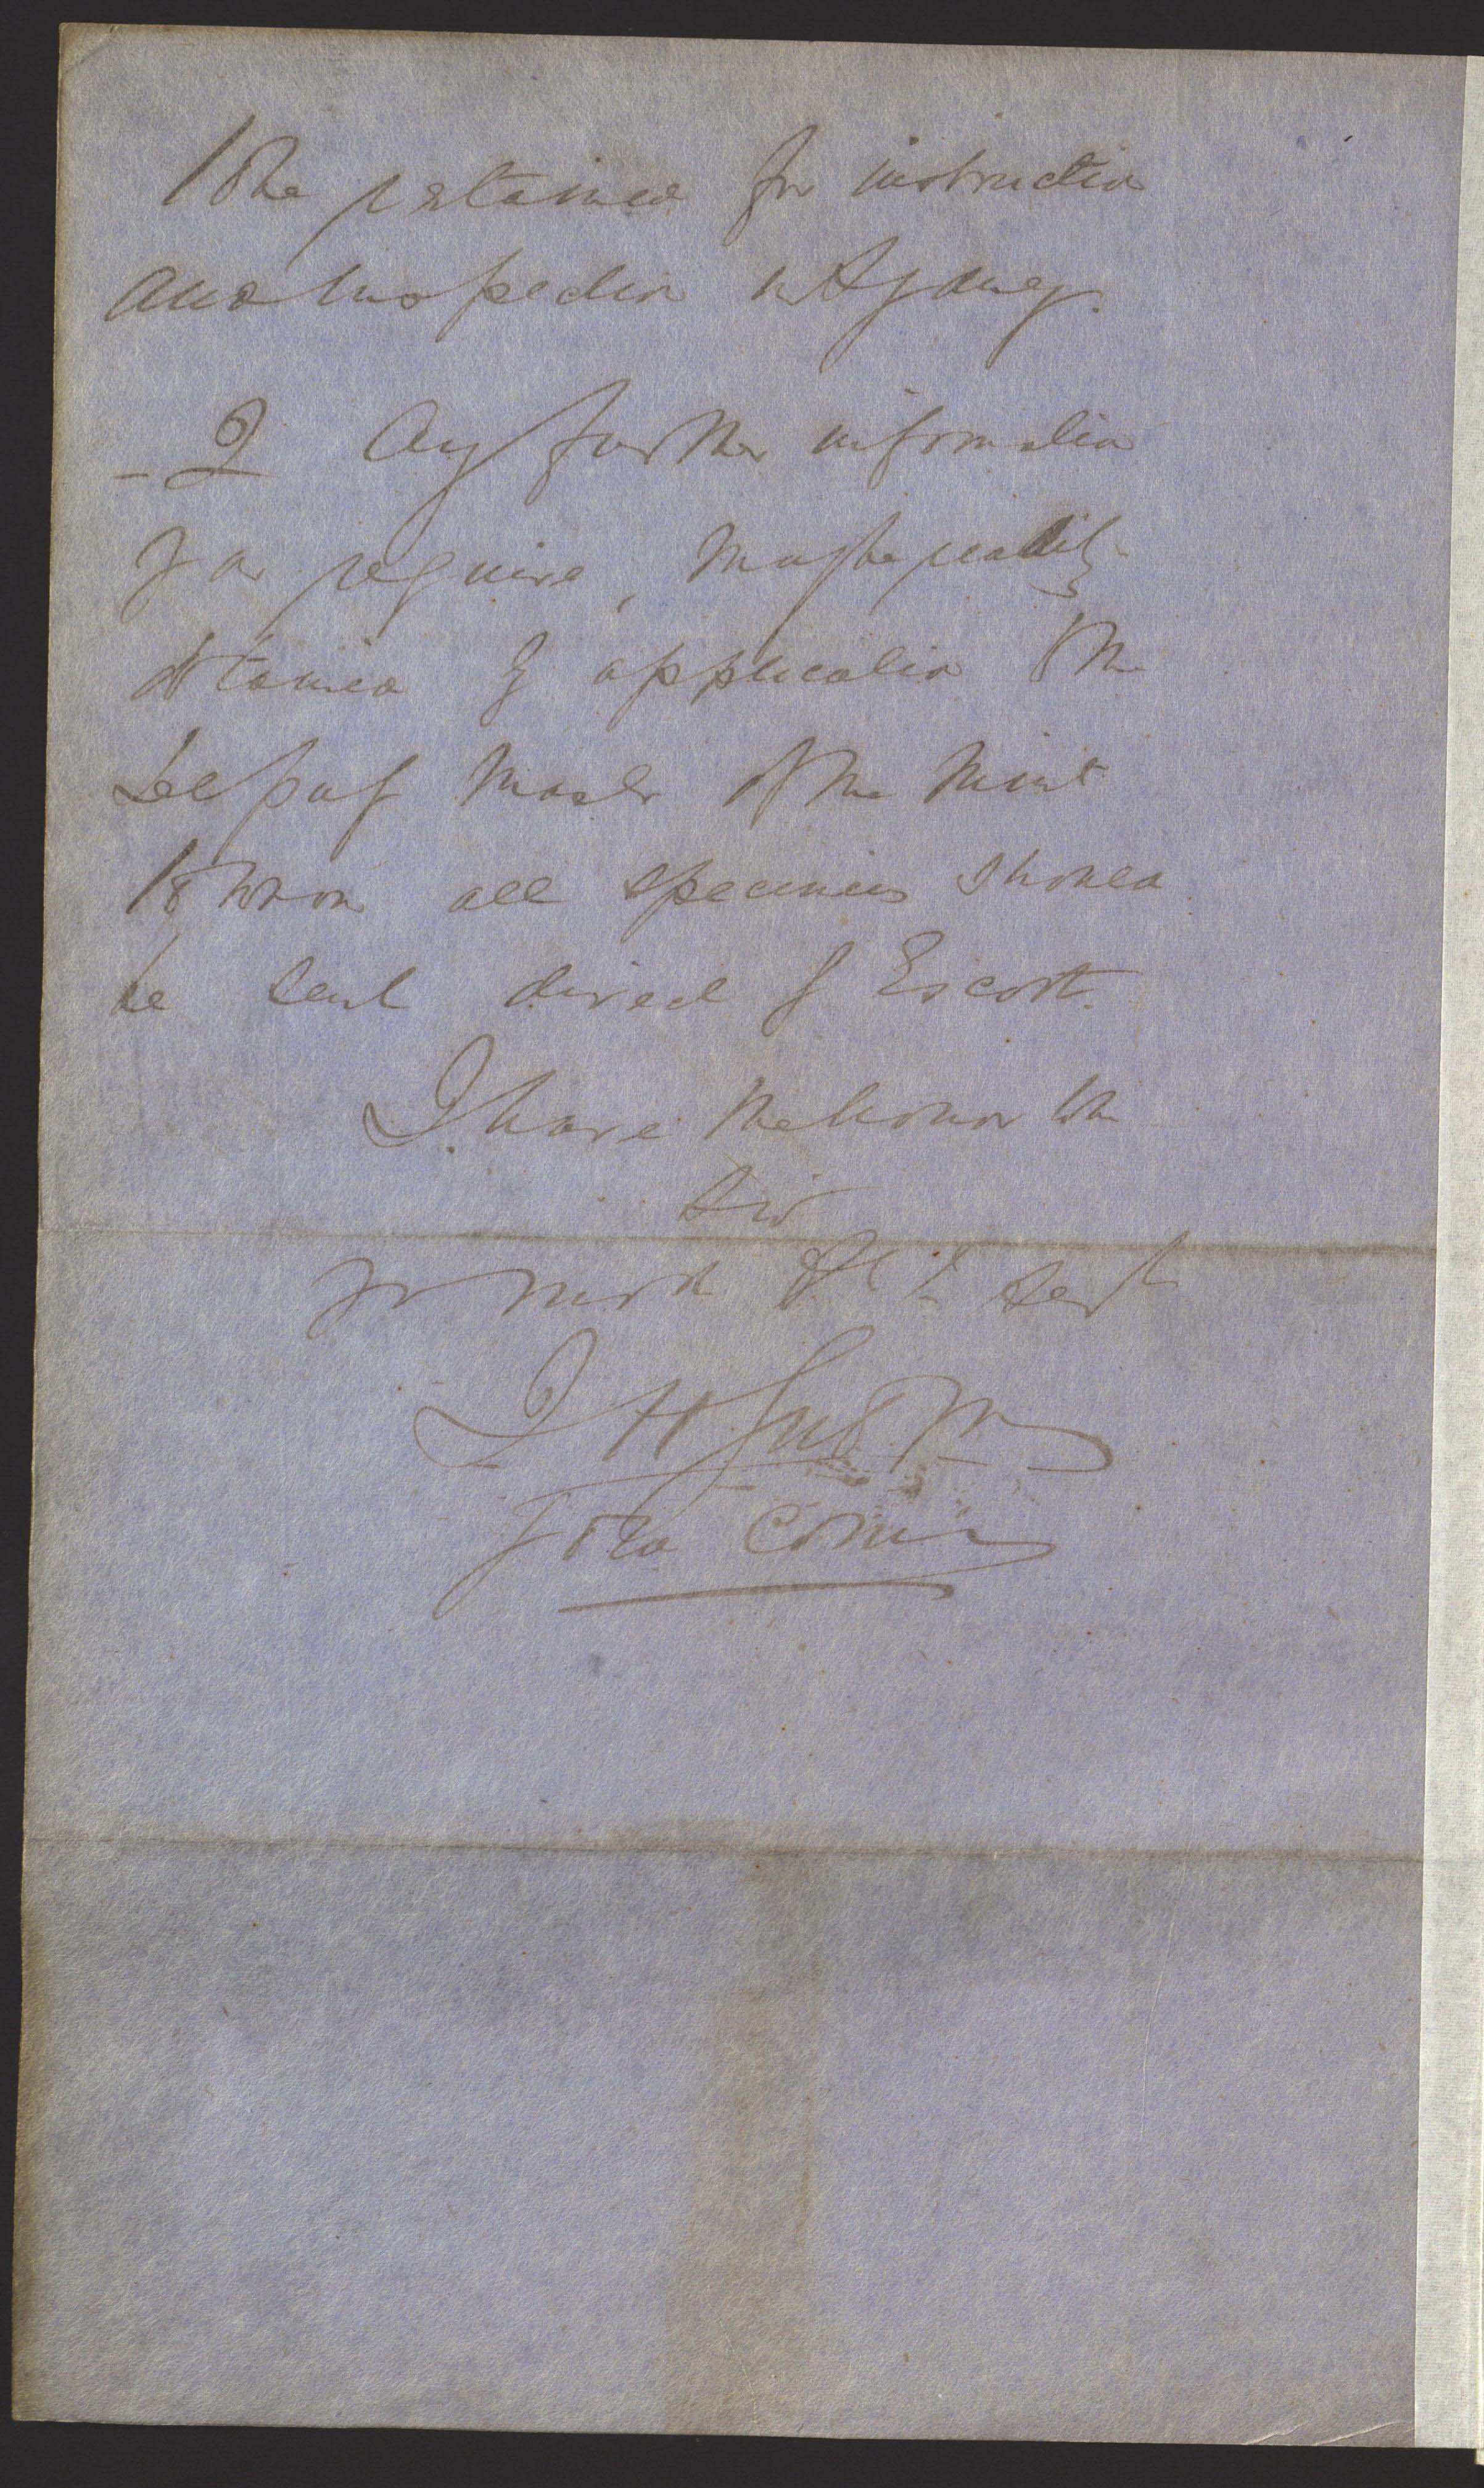 to be retained for instruction
and inspection in Sydney.
2 Any further information
you require, may be readily
obtained by application to the
Deputy Master of the Mint
to whom all specimens should
be sent direct by Escort.
I have the honor to be
Sir
Yr most Obt Servt
Gold Comr